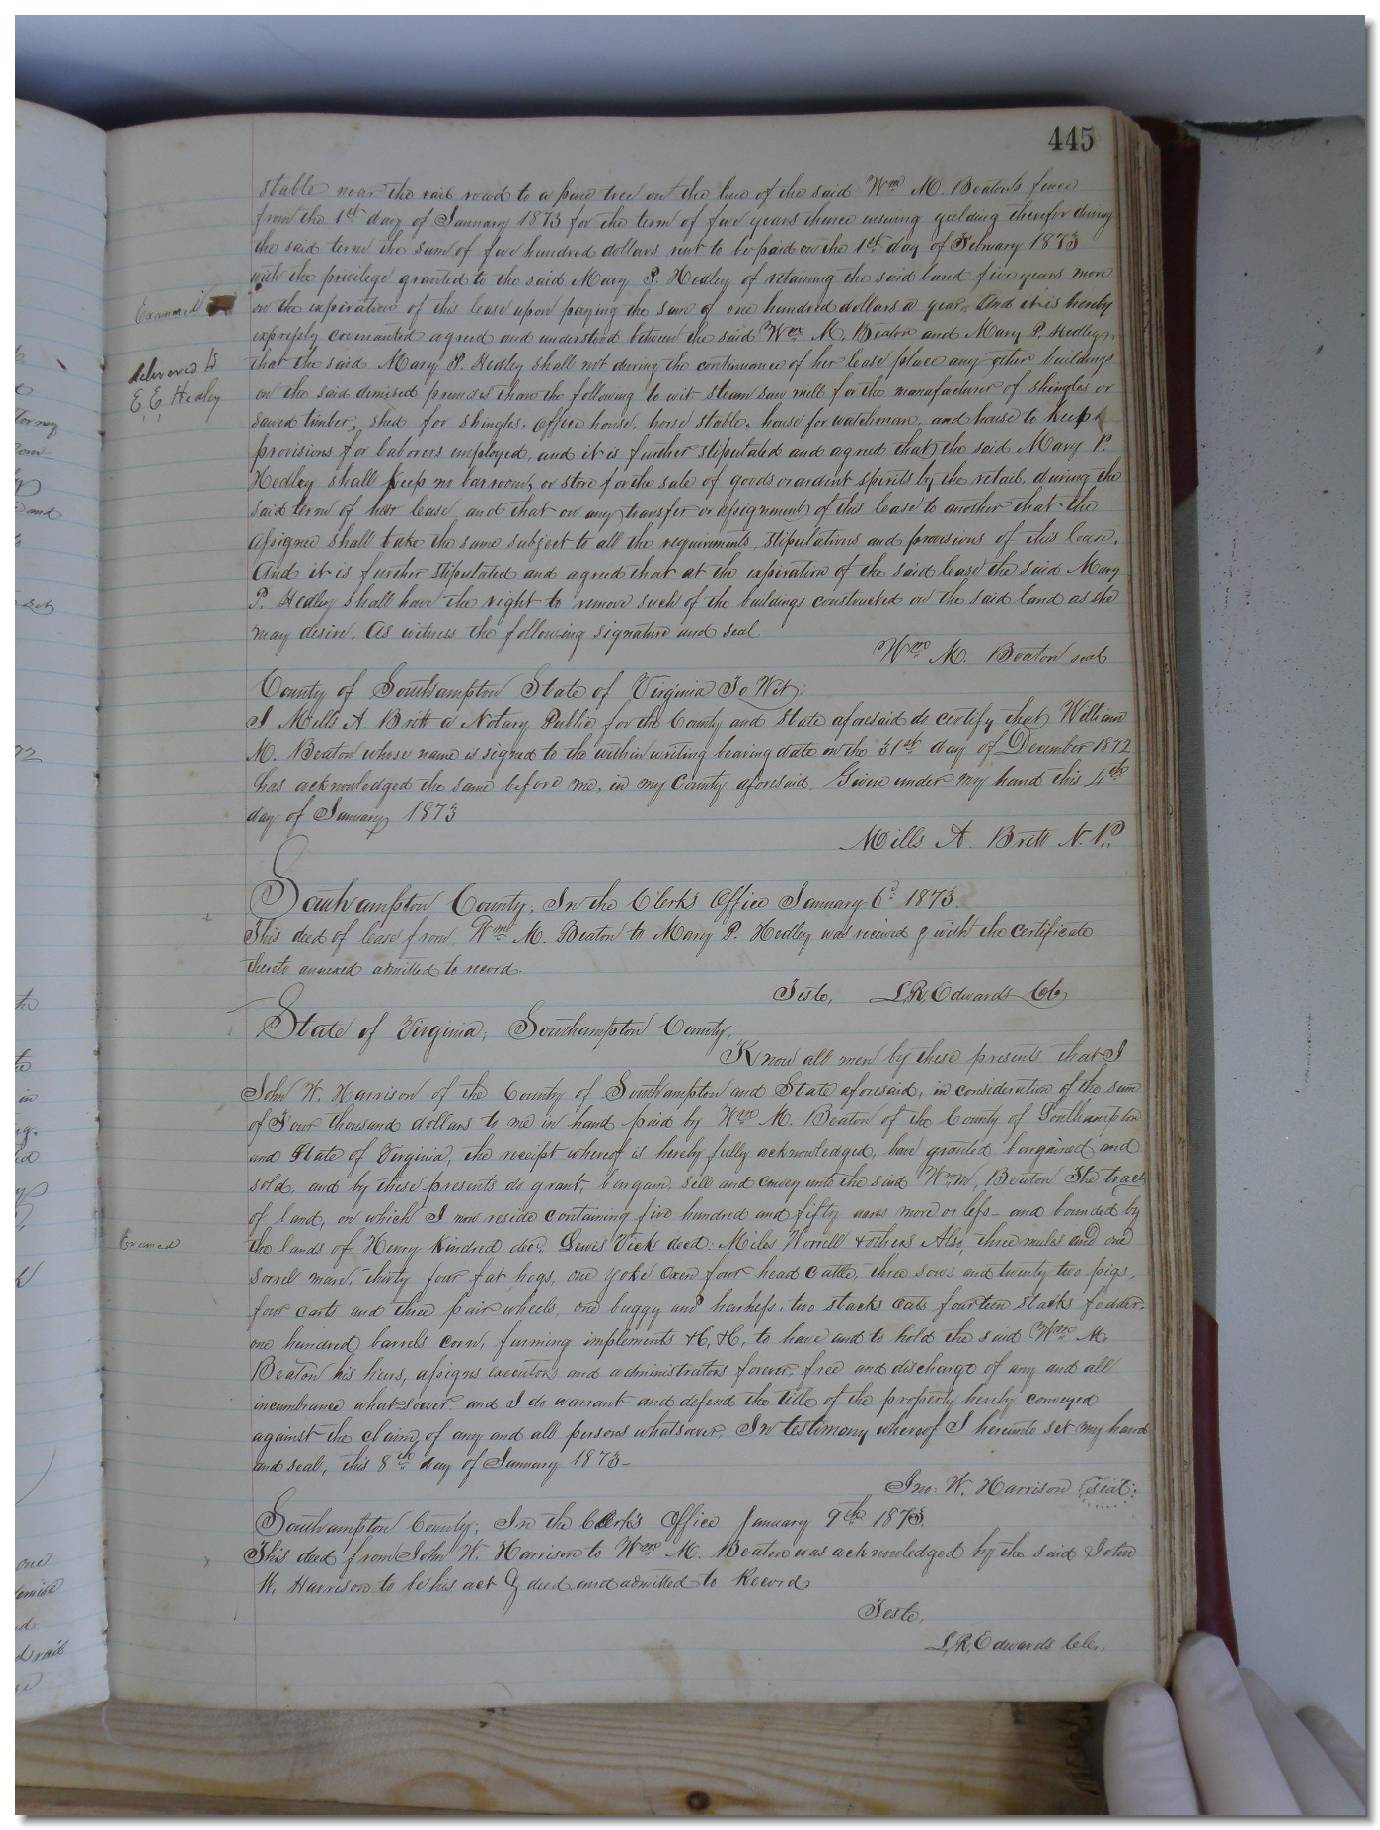 445
stable near the rail road to a pine tree on the line of the said Wm M. Beaton's fence
from the 1st day of January 1873 for the term of five years thence ensuing yielding therefor during
the said term the sum of five hundred dollars rent to be paid on the 1st day of February 1873
with the privilege granted to the said Mary P. Hedley of retaining the said land five years more
Examined
on the expiration of this lease upon paying the sum of one hundred dollars a year. And it is hereby
expressly covenanted agreed and understood between the said Wm M. Beaton and Mary P. Hedley
delivered to
E E Hedley
that the said Mary P. Hedley shall not during the continuance of her lease place any other buildings
on the said demised premises than the following to wit steam saw mill for the manufacturer of shingles or
sawed timber, shed for shingles. office house. horse stable. house for watchman. and house to keep
provisions for laborers employed, and it is further stipulated and agreed that the said Mary P.
Hedley shall keep no barroom, or store for the sale of goods or ardent spirits by the retail, during the
said term of her lease, and that on any transfer or assignment of this lease to another that the
assignee shall take the same subject to all the requirements, stipulations and provisions of this lease.
And it is further stipulated and agreed that at the expiration of the said lease the said Mary
P. Hedley shall have the right to remove such of the buildings constructed on the said land as she
may desire. As witness the following signature and seal
Wm M. Beaton seal
County of Southampton State of Virginia To Wit:
I Mills A Britt a Notary Public for the County and State aforesaid do certify that William
M. Beaton whose name is signed to the within writing bearing date on the 31st day of December 1872
has acknowledged the same before me, in my County aforesaid. Given under my hand this 4th
day of January 1873
Mills A. Britt N. P.
Southampton County. In the Clerks Office January 6th 1873.
This deed of lease from Wm M. Beaton to Mary P. Hedley was received & with the certificate
thereto annexed admitted to record.
Teste, L. R. Edwards Clk
State of Virginia, Southampton County,
Know all men by these presents that I
John W. Harrison of the County of Southampton and State aforesaid, in consideration of the sum
of Four thousand dollars to me in hand paid by Wm M. Beaton of the County of Southampton
and State of Virginia, the receipt whereof is hereby fully acknowledged, have granted bargained and
sold, and by these presents do grant, bargain, sell and convey unto the said Wm M. Beaton The tract
of land, on which I now reside containing five hundred and fifty acres more or less - and bounded by
Examined
the lands of Henry Kindred decd. Lewis Vick decd: Miles Worrell & others Also, three mules and one
Sorrell mare, thirty four fat hogs, one yoke Oxen four head Cattle, three sows and twenty two pigs,
four carts and three pair wheels, one buggy and harness, two stacks Oats fourteen stacks fodder.
one hundred barrels corn, farming implements &c, &c, to have and to hold the said Wm M.
Beaton his heirs, assigns executors and administrators forever, free and discharge of any and all
incumbrance whatsoever and I do warrant and defend the title of the property hereby conveyed
against the claim of any and all persons whatsoever. In testimony whereof I hereunto set my hand
and seal, this 8th day of January 1873 -
Jno: W. Harrison seal:
Southampton County; In the Clerk's Office January 9th 1873.
This deed from John W. Harrison to Wm M. Beaton was acknowledged by the said John
W. Harrison to be his act & deed and admitted to Record
Teste,
L. R. Edwards Clk.